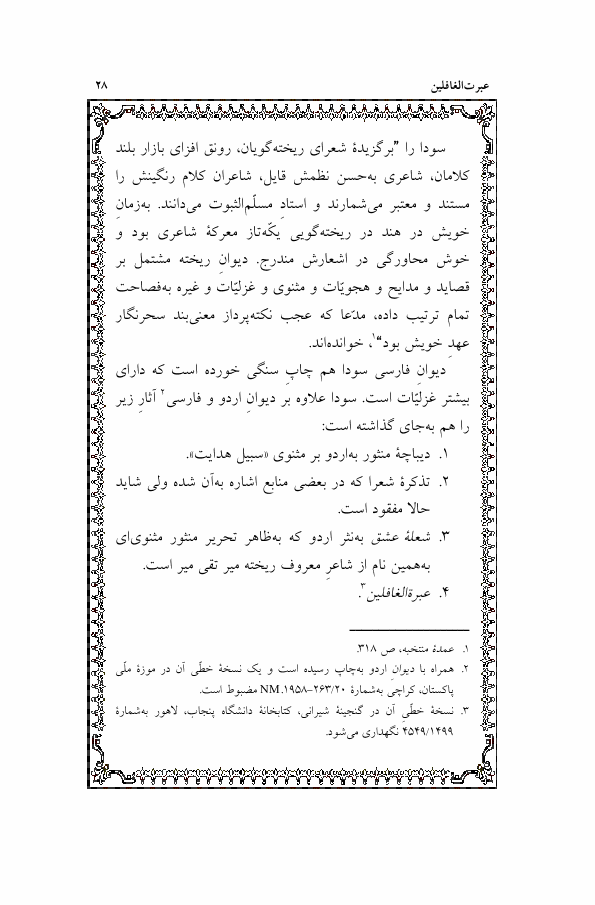 عبرت‌الغافلین ۲۸
سودا را ”برگزیدۀ شعرای ریخته‌گویان، رونق افزای بازار بلند
کلامان، شاعری به‌حسن نظمش قایل، شاعران کلام رنگینش را
مستند و معتبر می‌شمارند و استادِ مسلّم‌الثبوت می‌دانند. به‌زمانِ
خویش در هند در ریخته‌گویی یکّه‌تاز معرکۀ شاعری بود و
خوش محاورگی در اشعارش مندرج. دیوانِ ریخته مشتمل بر
قصاید و مدایح و هجویّات و مثنوی و غزلیّات و غیره به‌فصاحت
تمام ترتیب داده، مدّعا که عجب نکته‌پرداز معنی‌بند سحرنگار
عهدِ خویش بود“۱، خوانده‌اند.
دیوانِ فارسی سودا هم چاپِ سنگی خورده است که دارای
بیشتر غزلیّات است. سودا علاوه بر دیوانِ اردو و فارسی۲ آثارِ زیر
را هم به‌جای گذاشته است:
۱. دیباچۀ منثور به‌اردو بر مثنوی «سبیل هدایت».
۲. تذکرۀ شعرا که در بعضی منابع اشاره به‌آن شده ولی شاید
حالا مفقود است.
۳. شعلۀ عشق به‌نثر اردو که به‌ظاهر تحریر منثور مثنوی‌ای
به‌همین نام از شاعرِ معروف ریخته میر تقی میر است.
۴. عبرةالغافلین۳.
۱. عمدۀ منتخبه، ص ۳۱۸.
۲. همراه با دیوانِ اردو به‌چاپ رسیده است و یک نسخۀ خطّی آن در موزۀ ملّی
پاکستان، کراچی به‌شمارۀ NM.۱۹۵۸-۲۶۳/۲۰ مضبوط است.
۳. نسخۀ خطّیِ آن در گنجینۀ شیرانی، کتابخانۀ دانشگاه پنجاب، لاهور به‌شمارۀ
۴۵۴۹/۱۴۹۹ نگهداری می‌شود.